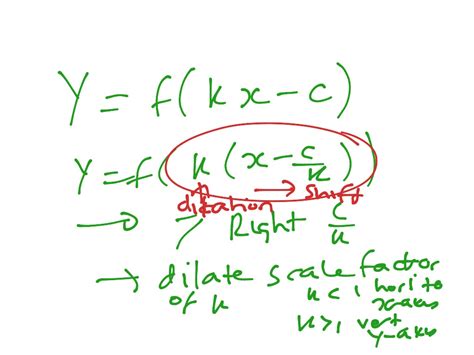 Y = f(kx-c)
Y = f(k(x-c/k))
dilation → shift
→ Right c/k
→ dilate scale factor
of k k<1 hori to
x-axis
k>1 vert
y-axis